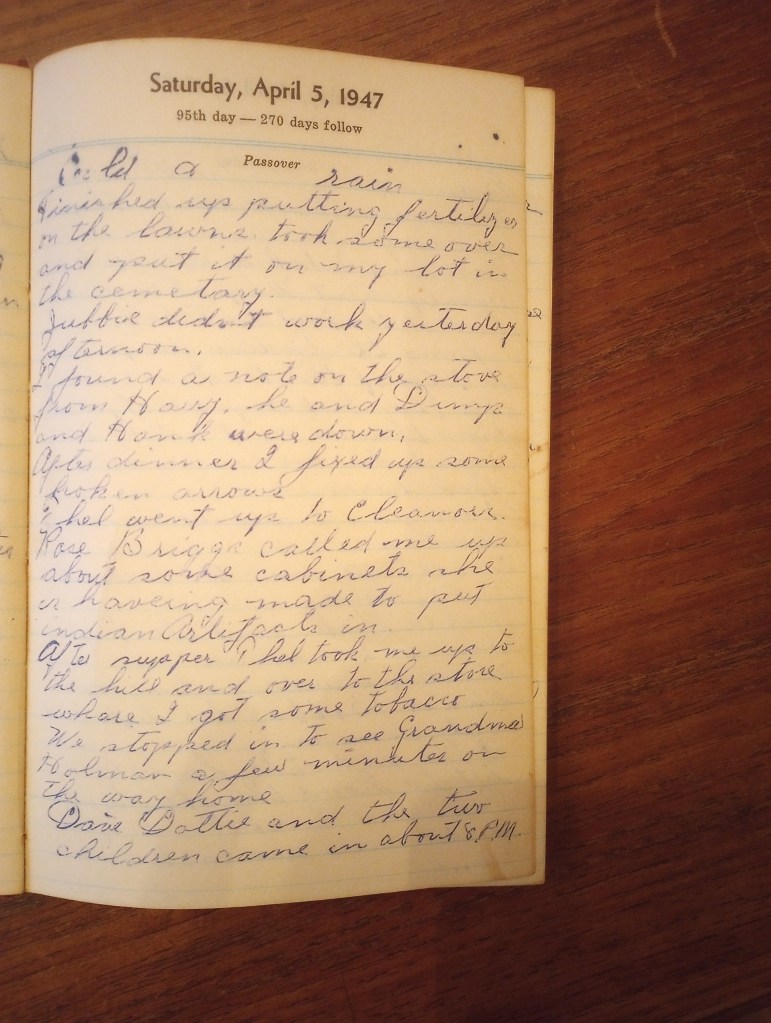 Saturday, April 5, 1947
95th day — 270 days follow
Passover
Cold a rain
Finished up putting fertilizer
on the lawns. took some over
and put it on my lot in
the cemetary.
Jubbie didn't work yesterday
afternoon.
I found a note on the stove
from Harry. he and Dimp
and Hank were down.
After dinner I fixed up some
broken arrows
Thel went up to Eleanors.
Rose Briggs called me up
about some cabinets she
is haveing made to put
indian Artifacts in.
After supper Thel took me up to
the hill and over to the store
whare I got some tobacco
We stopped in to see Grandma
Holman a few minutes on
the way home
Dave Dottie and the two
children came in about 8 P.M.